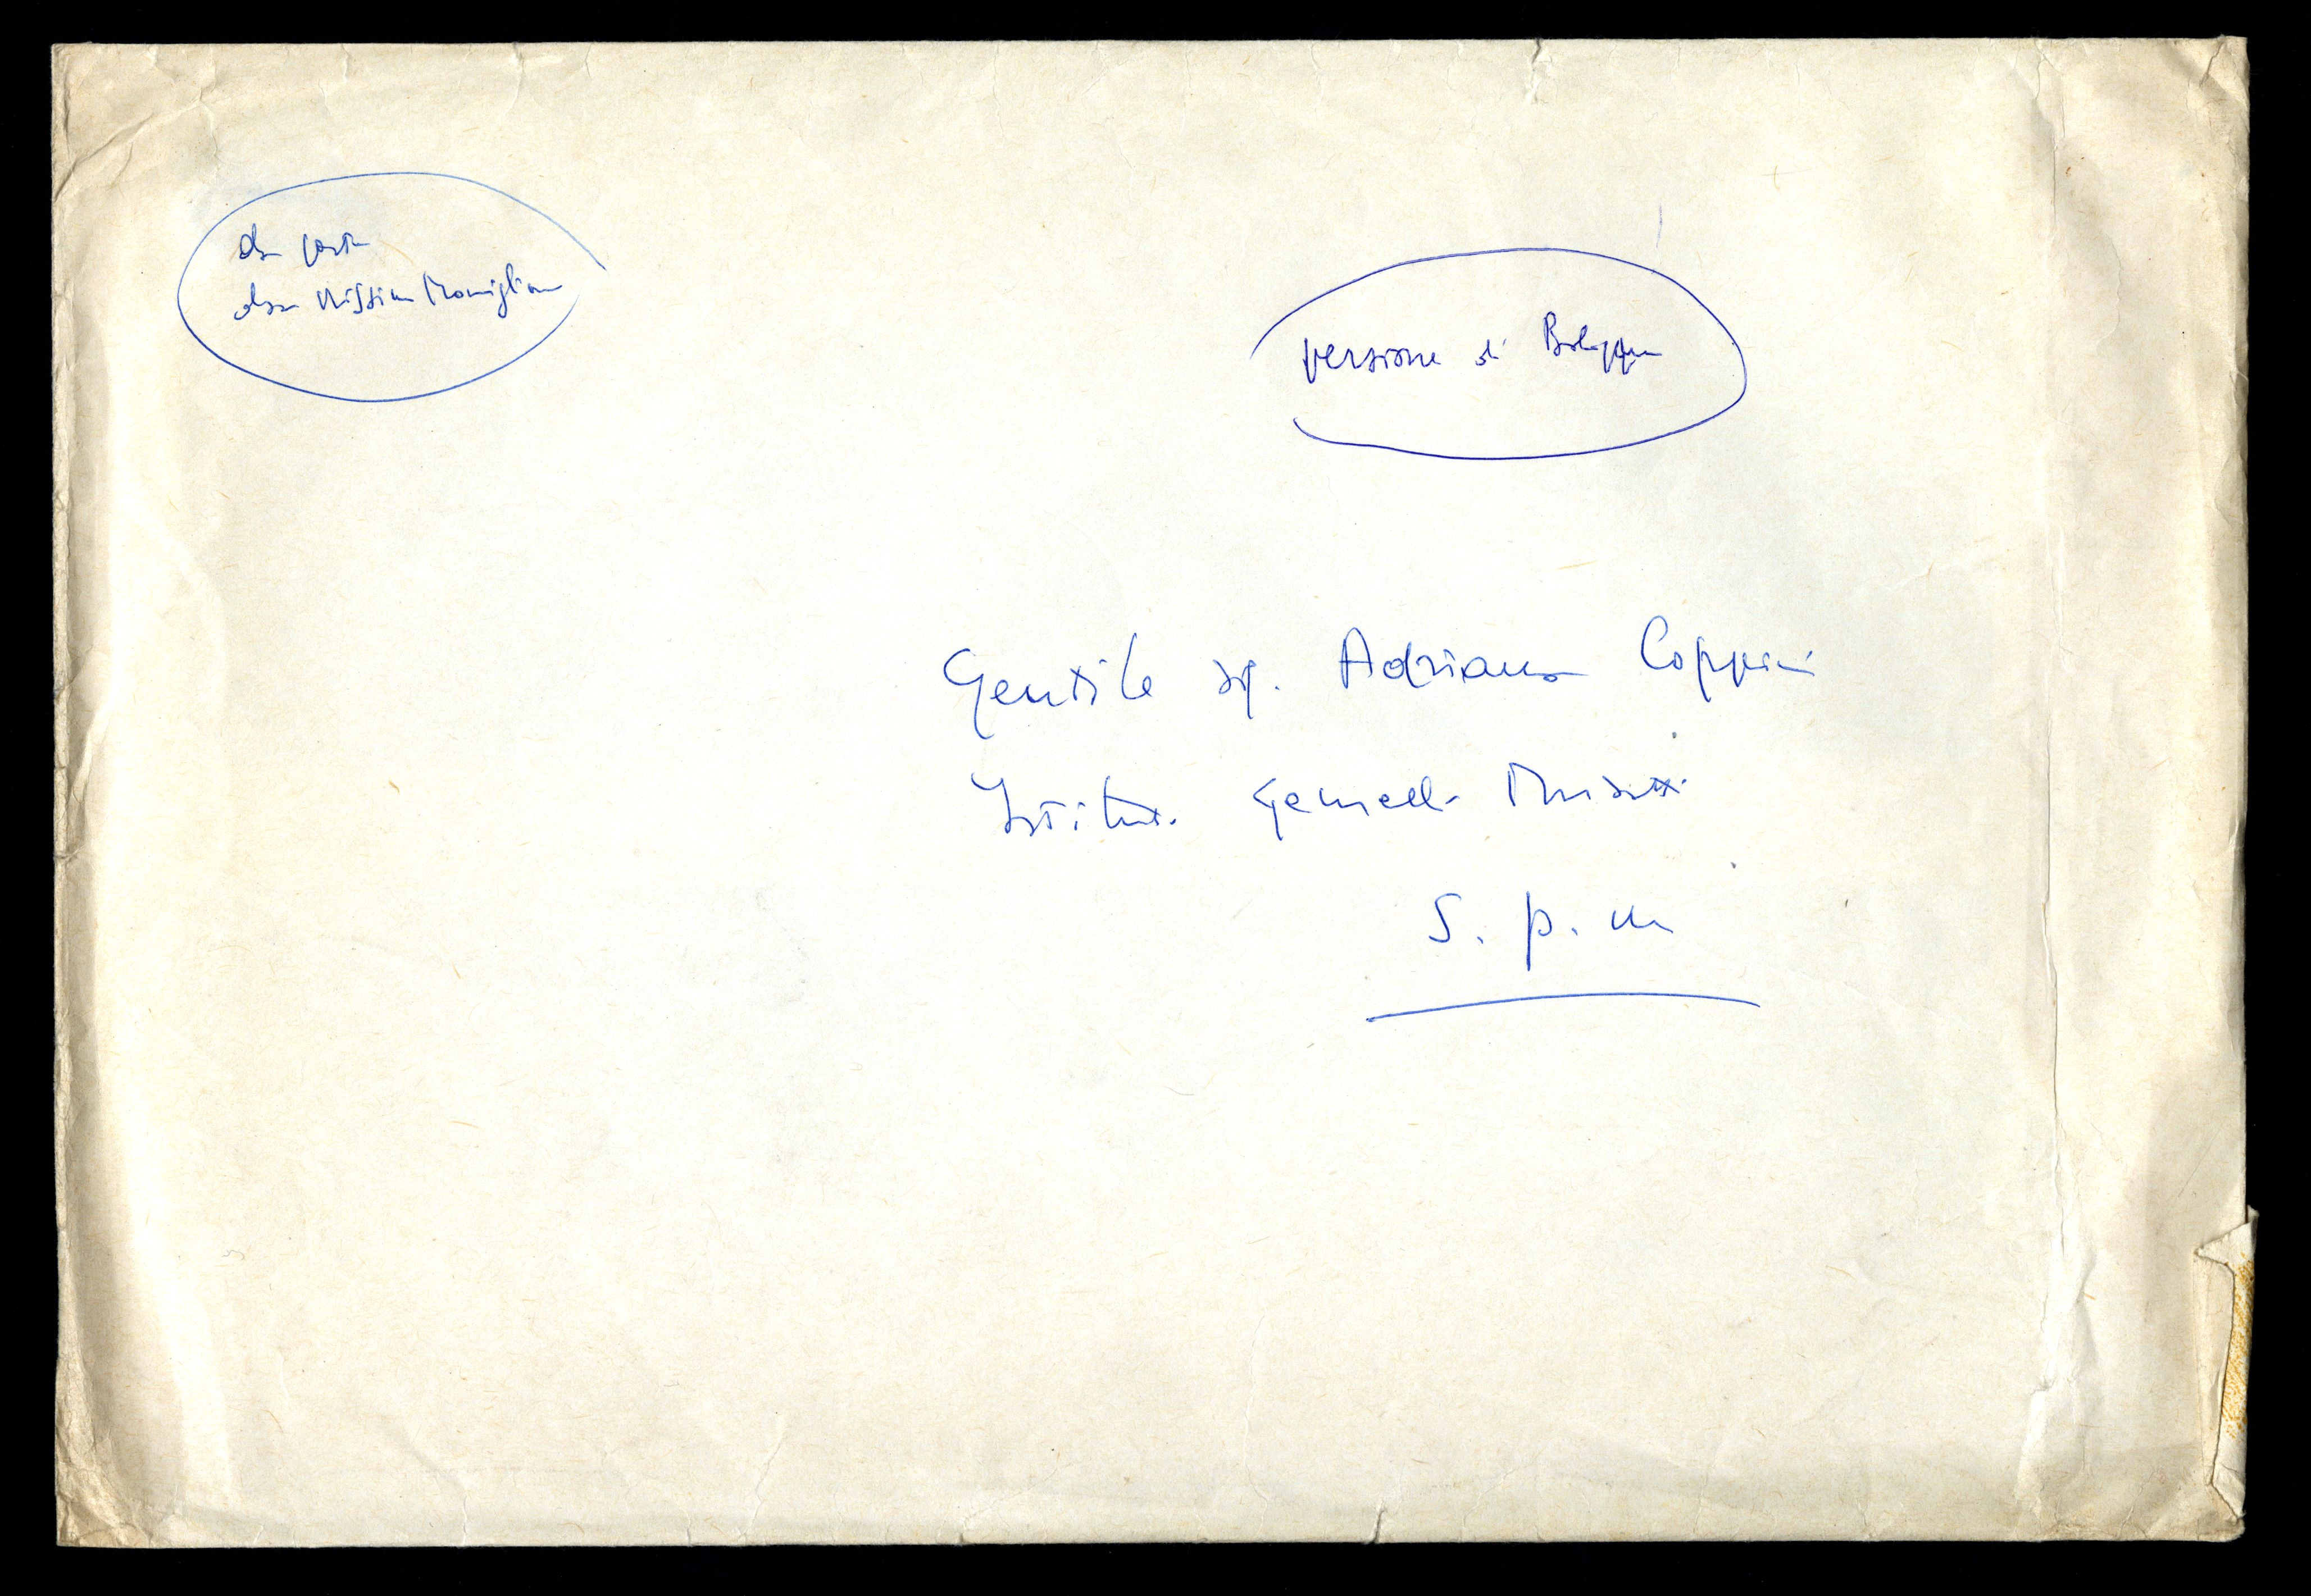 da parte
dr. Nissim Momigliano
versione di Bologna
Gentile sig. Adriano Coppini
Istituto Gemelli Musatti
S. p. m